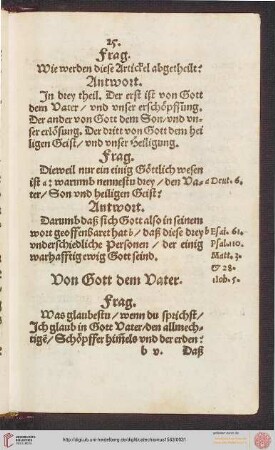 25.
Frag.
Wie werden diese Artickel abgetheilt?
Antwort.
In drey theil. Der erst ist von Gott
dem Vater / vnd vnser erschöpffung.
Der ander von Gott dem Son/vnd vn-
ser erlösung. Der dritt von Gott dem hei
ligen Geist/ vnd vnser Heiligung.
Frag.
Dieweil nur ein einig Göttlich wesen
ist a: warumb nennestu drey / den Va-
ter/ Son vnd heiligen Geist?
a Deut. 6.
Antwort.
Darumb daß sich Gott also in seinem
wort geoffenbaret hat b/ daß diese drey
vnderschiedliche Personen / der einig
warhafftig ewig Gott seind.
b Esai. 61.
Psal. 110.
Matt. 3.
& 28.
1 Ioh. 5.
Von Gott dem Vater.
Frag.
Was glaubestu / wenn du sprichst/
Ich glaub in Gott Vater/den allmech-
tigē/ Schöpffer him̄els vnd der erden?
b v. Daß
UNIVERSITÄTS-
BIBLIOTHEK
HEIDELBERG